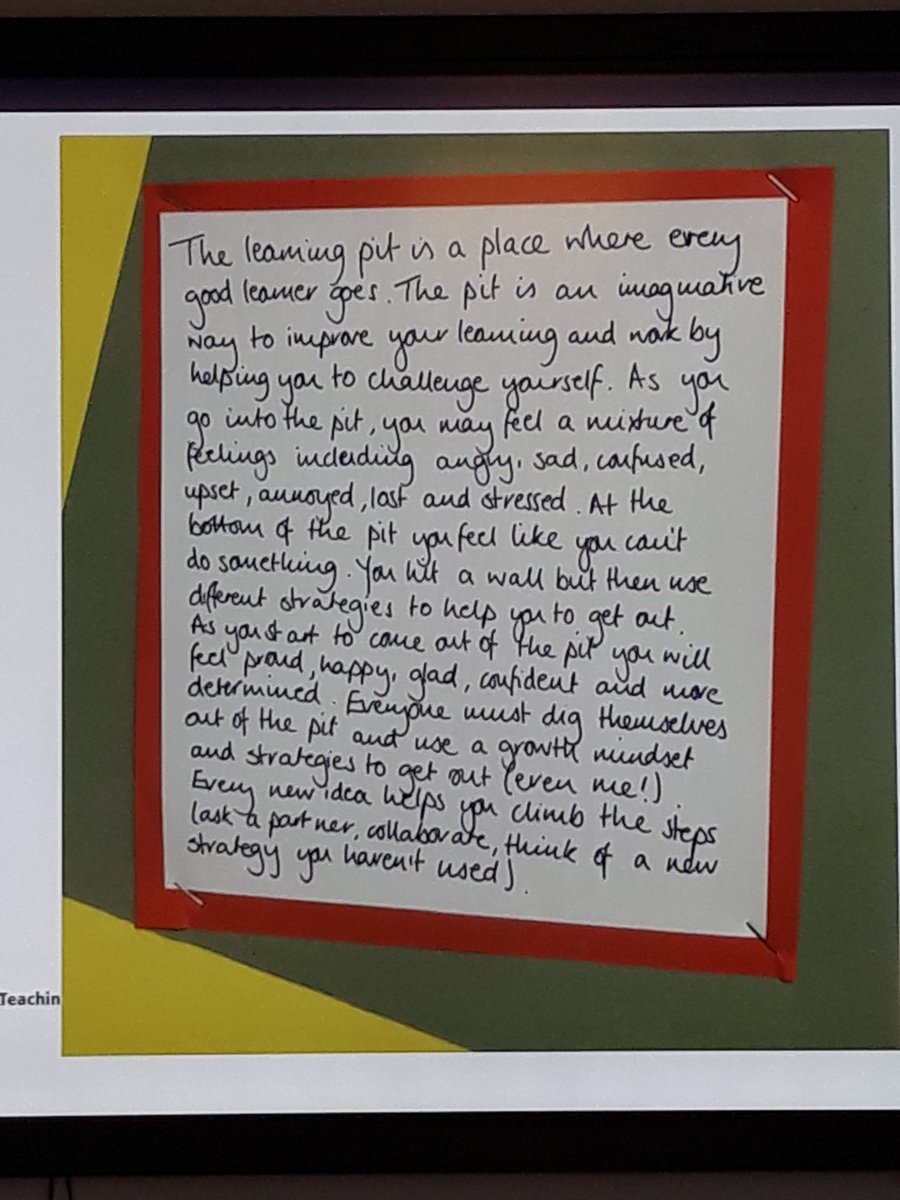 The learning pit is a place where every
good learner goes. The pit is an imaginative
way to improve your learning and work by
helping you to challenge yourself. As you
go into the pit, you may feel a mixture of
feelings including angry, sad, confused,
upset, annoyed, lost and stressed. At the
bottom of the pit you feel like you can't
do something. You hit a wall but then use
different strategies to help you to get out.
As you start to come out of the pit you will
feel proud, happy, glad, confident and more
determined. Everyone must dig themselves
out of the pit and use a growth mindset
and strategies to get out (even me!)
Every new idea helps you climb the steps
(ask a partner, collaborate, think of a new
strategy you haven't used).
Teachin